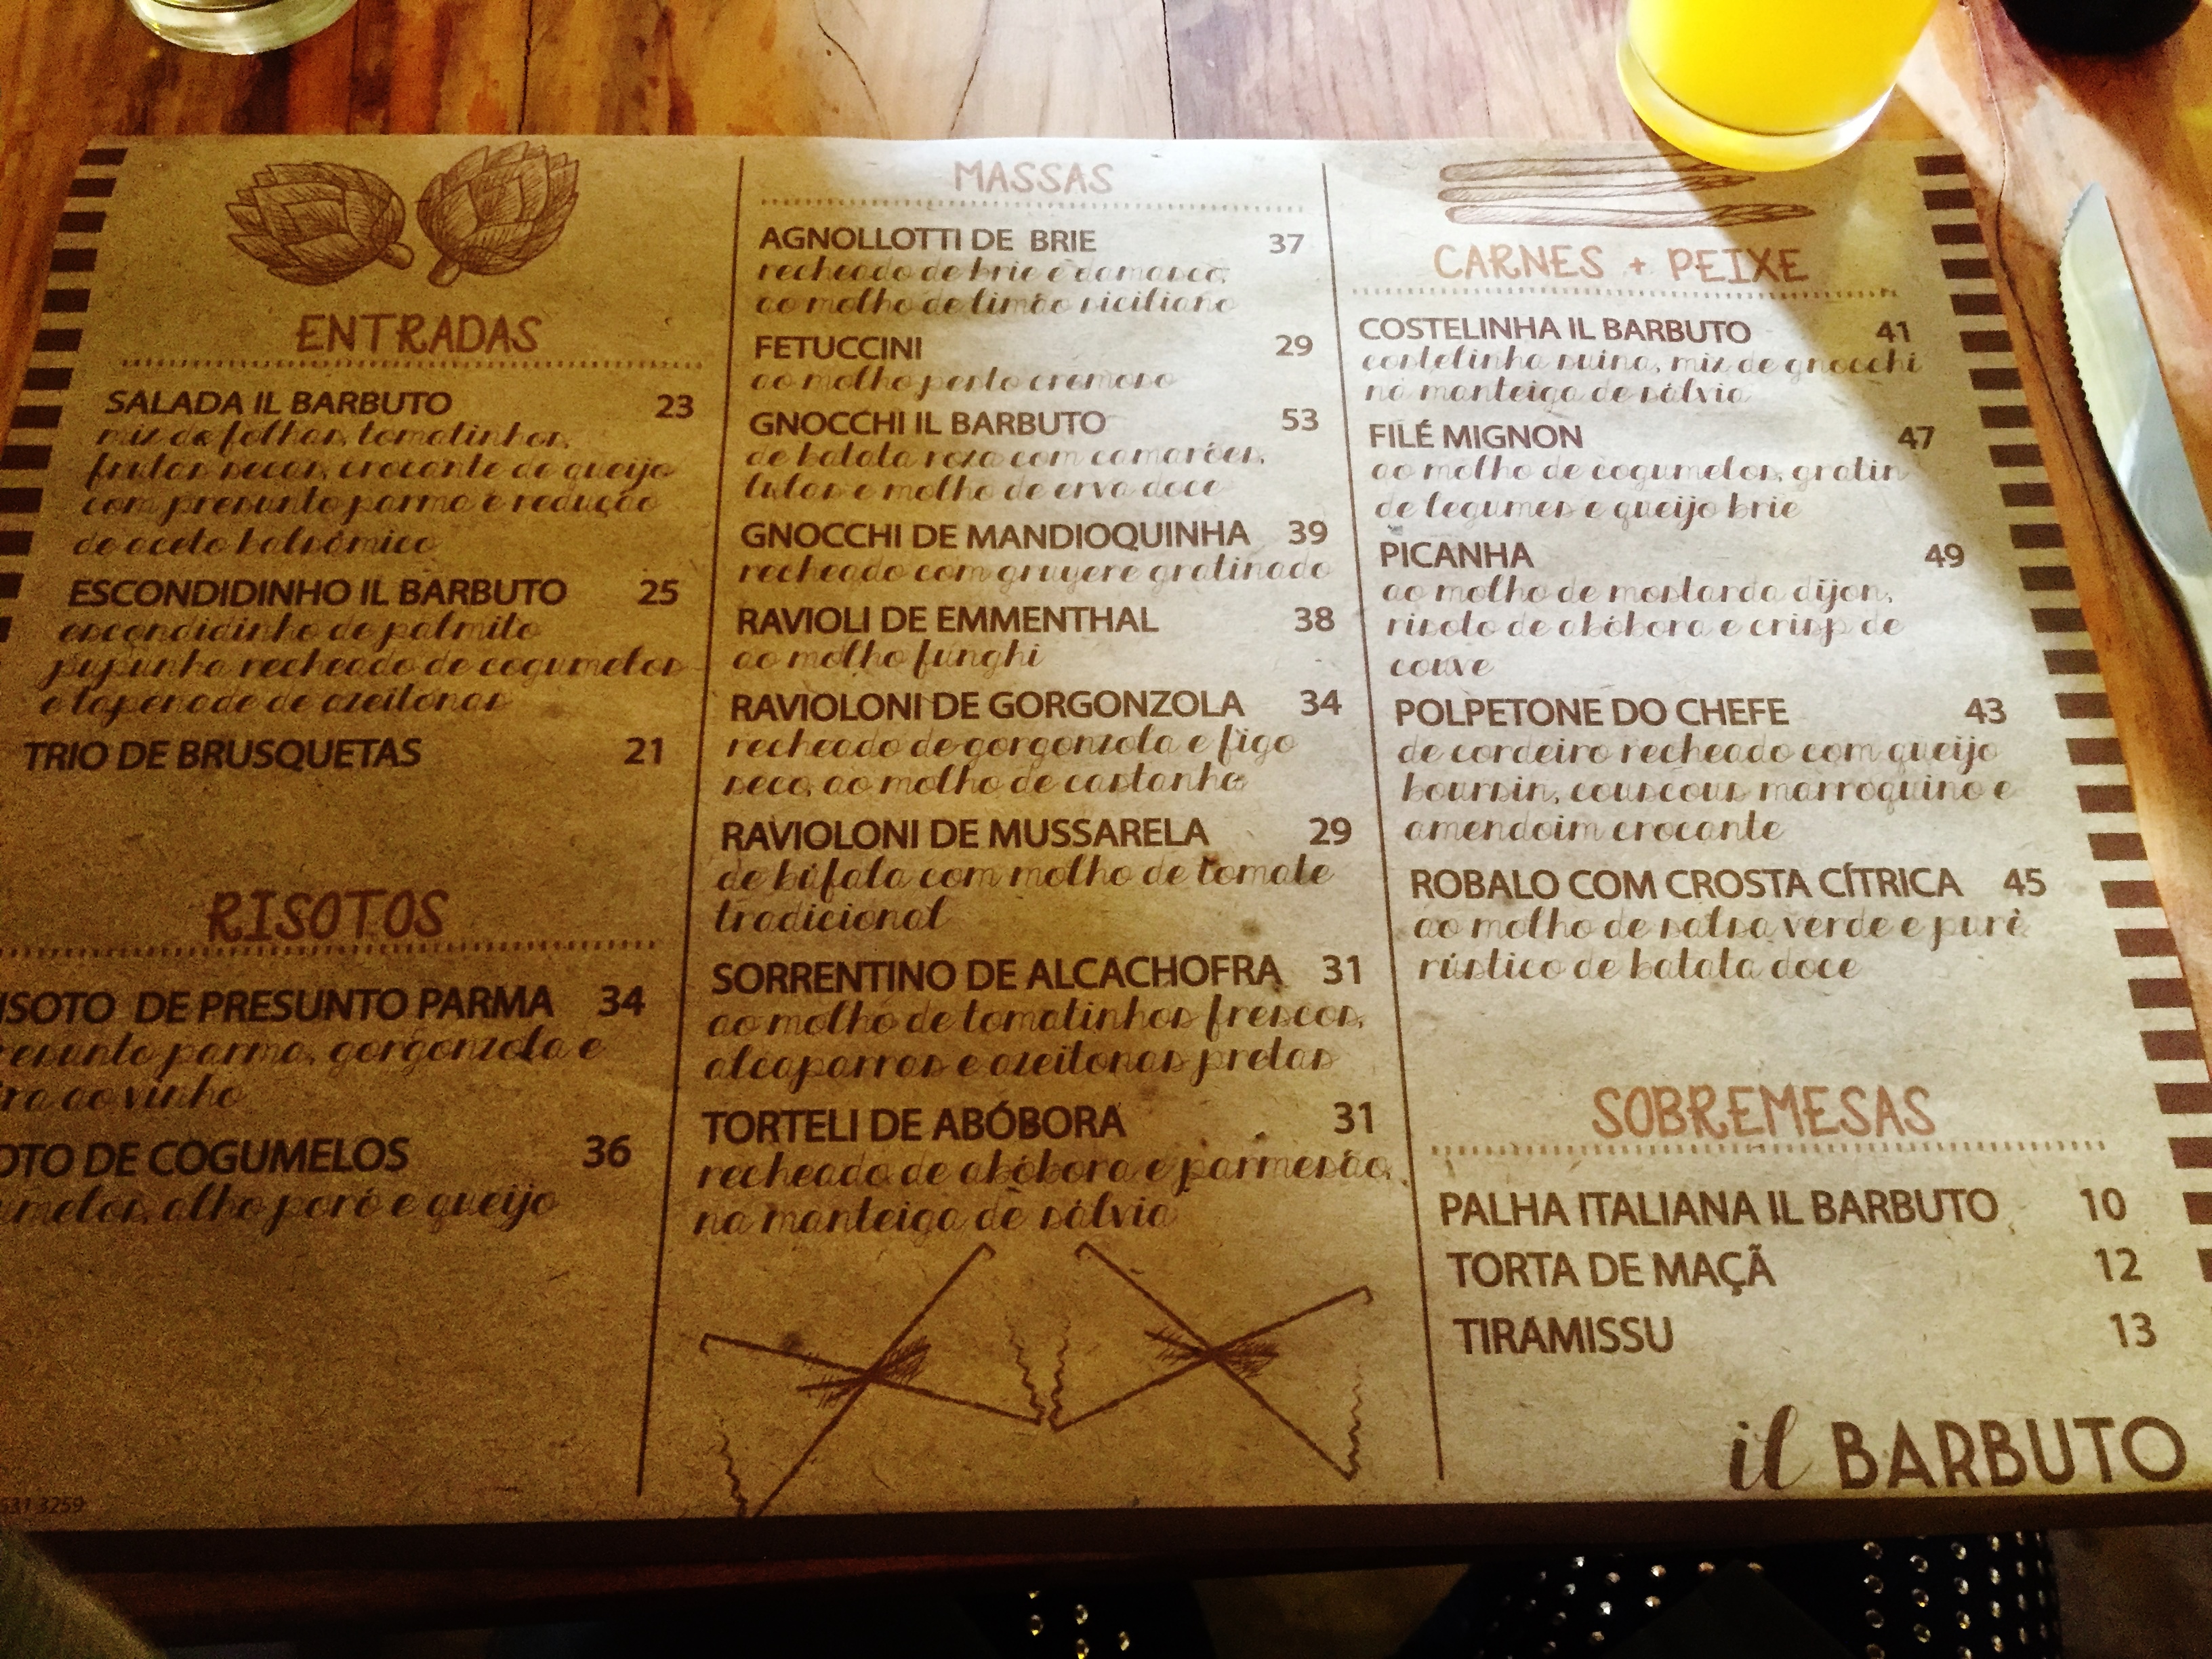 ENTRADAS
SALADA IL BARBUTO 23
mix de folhas, tomatinhos,
frutas secas, crocante de queijo
com presunto parma e redução
de aceto balsâmico
ESCONDIDINHO IL BARBUTO 25
escondidinho de palmito
pupunha recheado de cogumelos
e tapenade de azeitonas
TRIO DE BRUSQUETAS 21
RISOTOS
ISOTO DE PRESUNTO PARMA 34
resunto parma, gorgonzola e
ra ao vinho
OTO DE COGUMELOS 36
umelos, alho poró e queijo
531 3259
MASSAS
AGNOLLOTTI DE BRIE 37
recheado de brie e damasco,
ao molho de limão siciliano
FETUCCINI 29
ao molho pesto cremoso
GNOCCHI IL BARBUTO 53
de batata roxa com camarões,
lulas e molho de erva doce
GNOCCHI DE MANDIOQUINHA 39
recheado com gruyere gratinado
RAVIOLI DE EMMENTHAL 38
ao molho funghi
RAVIOLONI DE GORGONZOLA 34
recheado de gorgonzola e figo
seco, ao molho de castanha
RAVIOLONI DE MUSSARELA 29
de búfala com molho de tomate
tradicional
SORRENTINO DE ALCACHOFRA 31
ao molho de tomatinhos frescos,
alcaparras e azeitonas pretas
TORTELI DE ABÓBORA 31
recheado de abóbora e parmesão,
na manteiga de sálvia
CARNES + PEIXE
COSTELINHA IL BARBUTO 41
costelinha suina, mix de gnocchi
na manteiga de sálvia
FILÉ MIGNON 47
ao molho de cogumelos, gratin
de legumes e queijo brie
PICANHA 49
ao molho de mostarda dijon,
risoto de abóbora e crisp de
couve
POLPETONE DO CHEFE 43
de cordeiro recheado com queijo
boursin, couscous marroquino e
amendoim crocante
ROBALO COM CROSTA CÍTRICA 45
ao molho de salsa verde e purê
rústico de batata doce
SOBREMESAS
PALHA ITALIANA IL BARBUTO 10
TORTA DE MAÇÃ 12
TIRAMISSU 13
il BARBUTO